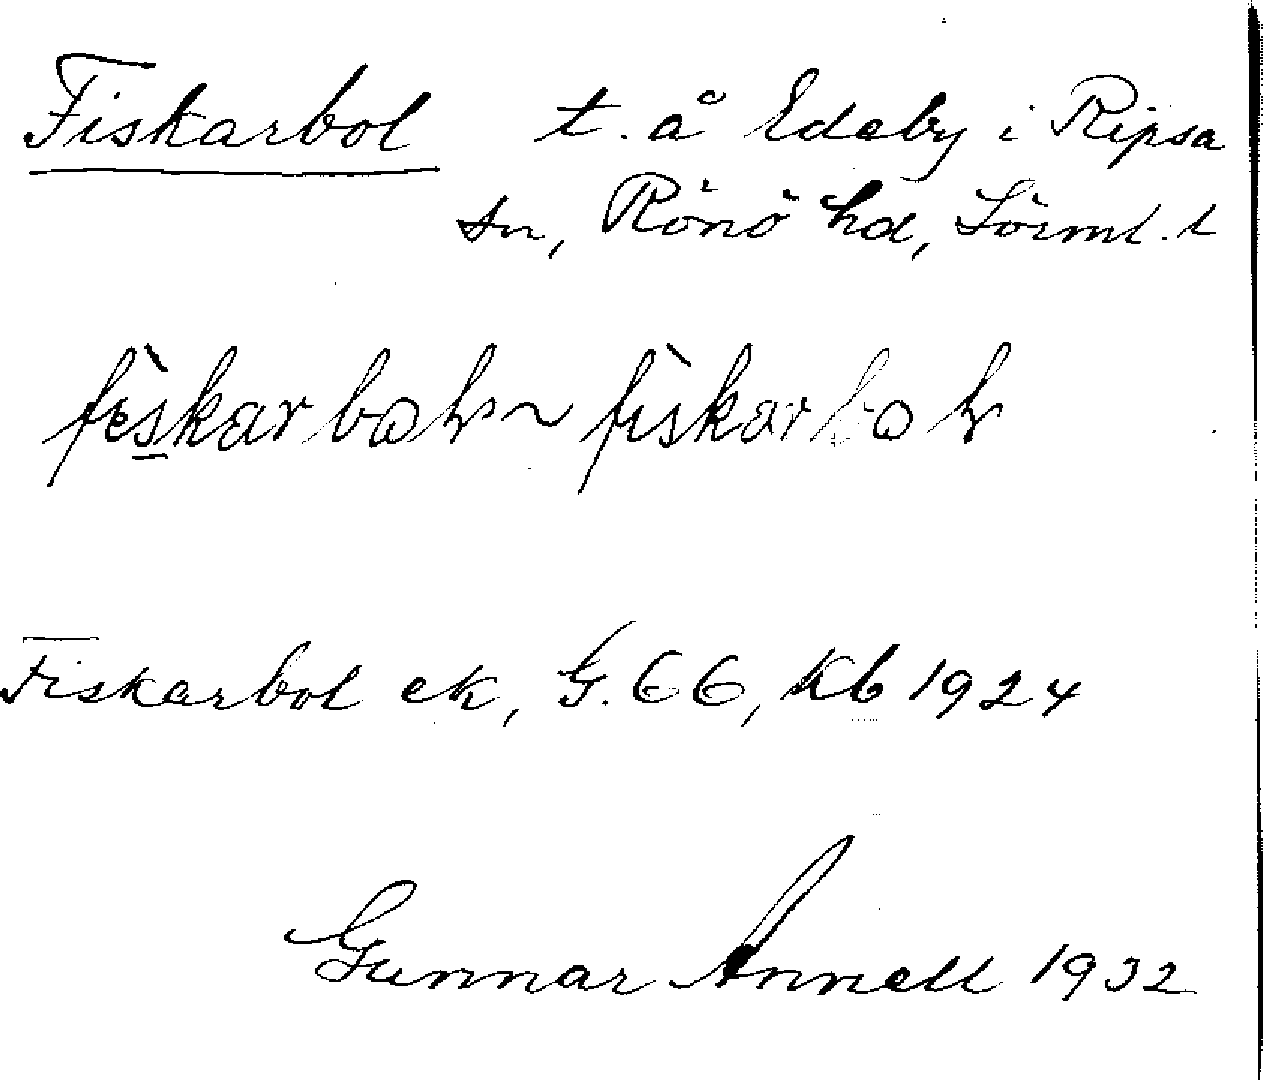 Fiskarbol t. å Edeby i Ripsa
sn, Rönö hd, Sörml. l
fìskarboɷ ~ fìskarbo
Fiskarbol ek, G. 66, Kb 1924
Gunnar Annell 1932